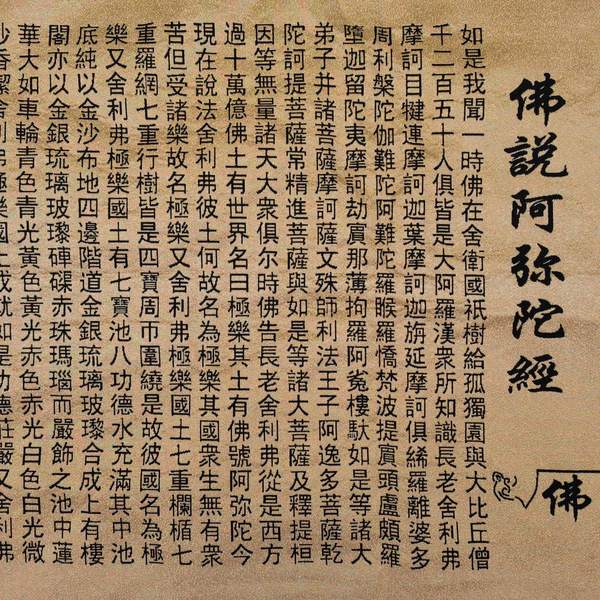 佛說阿弥陀經
佛
如是我聞一時佛在舍衛國祇樹給孤獨園與大比丘僧
千二百五十人俱皆是大阿羅漢衆所知識長老舍利弗
摩訶目犍連摩訶迦葉摩訶迦旃延摩訶俱絺羅離婆多
周利槃陀伽難陀阿難陀羅睺羅憍梵波提賓頭盧頗羅
墮迦留陀夷摩訶劫賓那薄拘羅阿㝹樓馱如是等諸大
弟子并諸菩薩摩訶薩文殊師利法王子阿逸多菩薩乾
陀訶提菩薩常精進菩薩與如是等諸大菩薩及釋提桓
因等無量諸天大衆俱尔時佛告長老舍利弗從是西方
過十萬億佛土有世界名曰極樂其土有佛號阿弥陀今
現在說法舍利弗彼土何故名為極樂其國衆生無有衆
苦但受諸樂故名極樂又舍利弗極樂國土七重欄楯七
重羅網七重行樹皆是四寶周帀圍繞是故彼國名為極
樂又舍利弗極樂國土有七寶池八功德水充滿其中池
底純以金沙布地四邊階道金銀琉璃玻瓈合成上有樓
閣亦以金銀琉璃玻瓈硨磲赤珠瑪瑙而嚴飾之池中蓮
華大如車輪青色青光黃色黃光赤色赤光白色白光微
妙香潔舍利弗極樂國土成就如是功德莊嚴又舍利弗